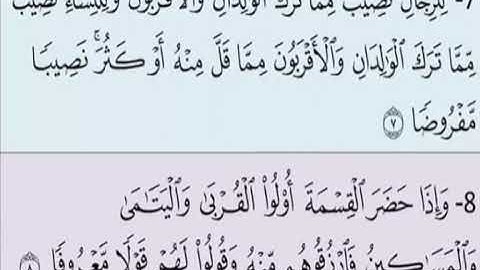 7- لِّلرِّجَالِ نَصِيبٌ مِّمَّا تَرَكَ ٱلْوَٰلِدَانِ وَٱلْأَقْرَبُونَ وَلِلنِّسَآءِ نَصِيبٌ
مِّمَّا تَرَكَ ٱلْوَٰلِدَانِ وَٱلْأَقْرَبُونَ مِمَّا قَلَّ مِنْهُ أَوْ كَثُرَ ۚ نَصِيبًا
مَّفْرُوضًا ٧
8- وَإِذَا حَضَرَ ٱلْقِسْمَةَ أُو۟لُوا۟ ٱلْقُرْبَىٰ وَٱلْيَتَٰمَىٰ
وَٱلْمَسَٰكِينُ فَٱرْزُقُوهُم مِّنْهُ وَقُولُوا۟ لَهُمْ قَوْلًا مَّعْرُوفًا ٨